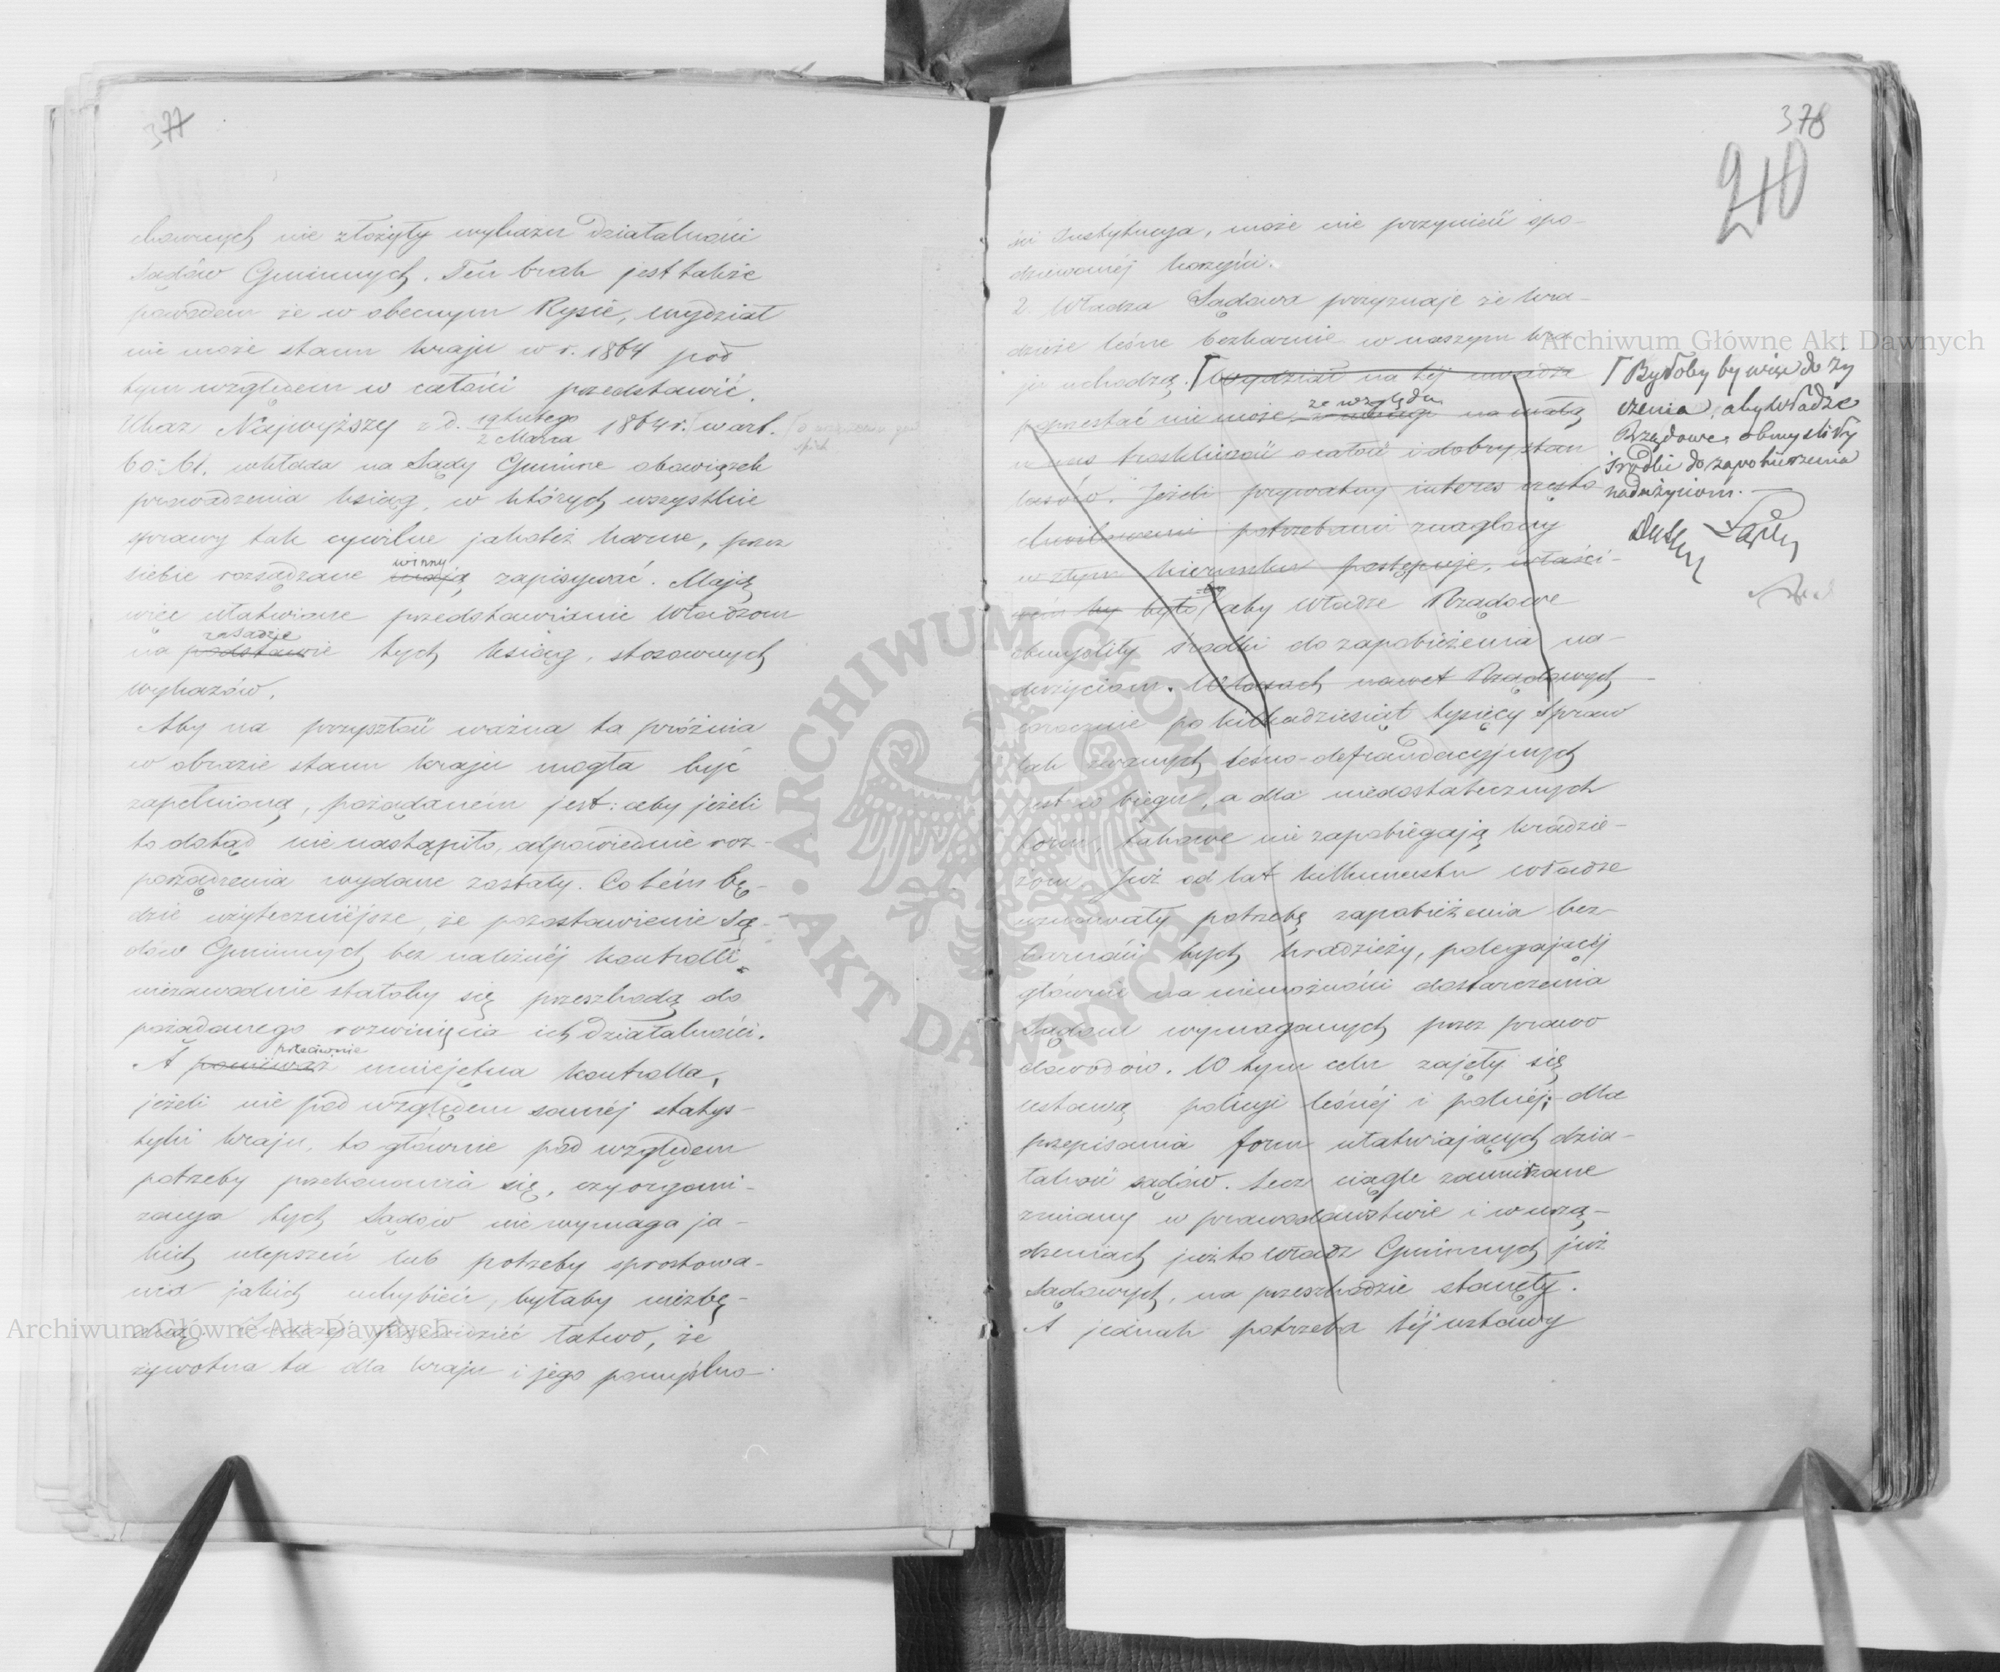 377
chownych nie złożyły wykazu działalności
Sądów Gminnych. Ten brak jest także
powodem że w obecnym Rysie, wydział
nie może stanu kraju w r. 1864 pod
tym względem w całości przedstawić.
Ukaz Najwyższy z d. 19 Lutego / 2 Marca 1864 r. w art.
60: 61. wkłada na Sądy Gminne obowiązek
prowadzenia ksiąg, w których wszystkie
sprawy tak cywilne jakoteż karne, przez
siebie rozsądzane mają winny zapisywać. Mają
więc ułatwione przedstawienie Władzom
na podstawie zasadzie tych ksiąg, stosownych
wykazów.
Aby na przyszłość ważna ta próżnia
w obrazie stanu kraju mogła być
zapełnioną, pożądaném jest: aby jeżeli
to dotąd nie nastąpiło, odpowiednie roz-
porządzenia wydane zostały. Co tém bę-
dzie użyteczniejsze, że pozostawienie Są-
dów Gminnych bez należnéj kontrolli
niezawodnie stałoby się przeszkodą do
pożądanego rozwinięcia ich działalności.
A ponieważ przeciwnie umiejętna kontrolla,
jeżeli nie pod względem saméj statys-
tyki kraju, to głównie pod względem
potrzeby przekonania się, czy organi-
zacya tych Sądów nie wymaga ja-
kich ulepszeń lub potrzeby sprostowa-
nia jakich uchybień, byłaby niezbę-
dną. łatwo, że
żywotna ta dla kraju i jego pomyślno-
378
210
ści Instytucya, może nie przynieść spo-
dziewanéj korzyści.
2. Władza Sądowa przyznaje że kra-
dzieże leśne bezkarnie w naszym kra-
ju uchodzą. Wydział na téj uwadze
poprzestać nie może, z uwagi ze względu na małą
u nas troskliwość o całość i dobry stan
lasów. Jeżeli prywatny interes często
chwilowemi potrzebami znaglony
w złym kierunku postępuje, właści-
wém by było aby Władze Rządowe
obmyśliły środki do zapobieżenia na-
dużyciom. W lasach nawet Rządowych
corocznie po kilkadziesiąt tysięcy spraw
tak zwanych leśno-defraudacyjnych
jest w biegu, a dla niedostatecznych
form, takowe nie zapobiegają kradzie-
żom. Już od lat kilkunastu władze
uznawały potrzebę zapobieżenia bez-
karności tych kradzieży, polegającéj
głównie na niemożności dostarczenia
Sądom wymaganych przez prawo
dowodów. W tym celu zajęły się
ustawą policyi leśnéj i polnéj; dla
przepisania form ułatwiających dzia-
łalność sądów. Lecz ciągle zamierzane
zmiany w prawodawstwie i w urzą-
dzeniach już to władz Gminnych już
Sądowych, na przeszkodzie stanęły.
A jednak potrzeba téj ustawy
Byłoby by więc do ży
czenia, aby Władze
Rządowe obmyśliły
środki do zapobieżenia
nadużyciom.
Archiwum Główne Akt Dawnych
Archiwum Główne Akt Dawnych
ARCHIWUM GŁÓWNE AKT DAWNYCH